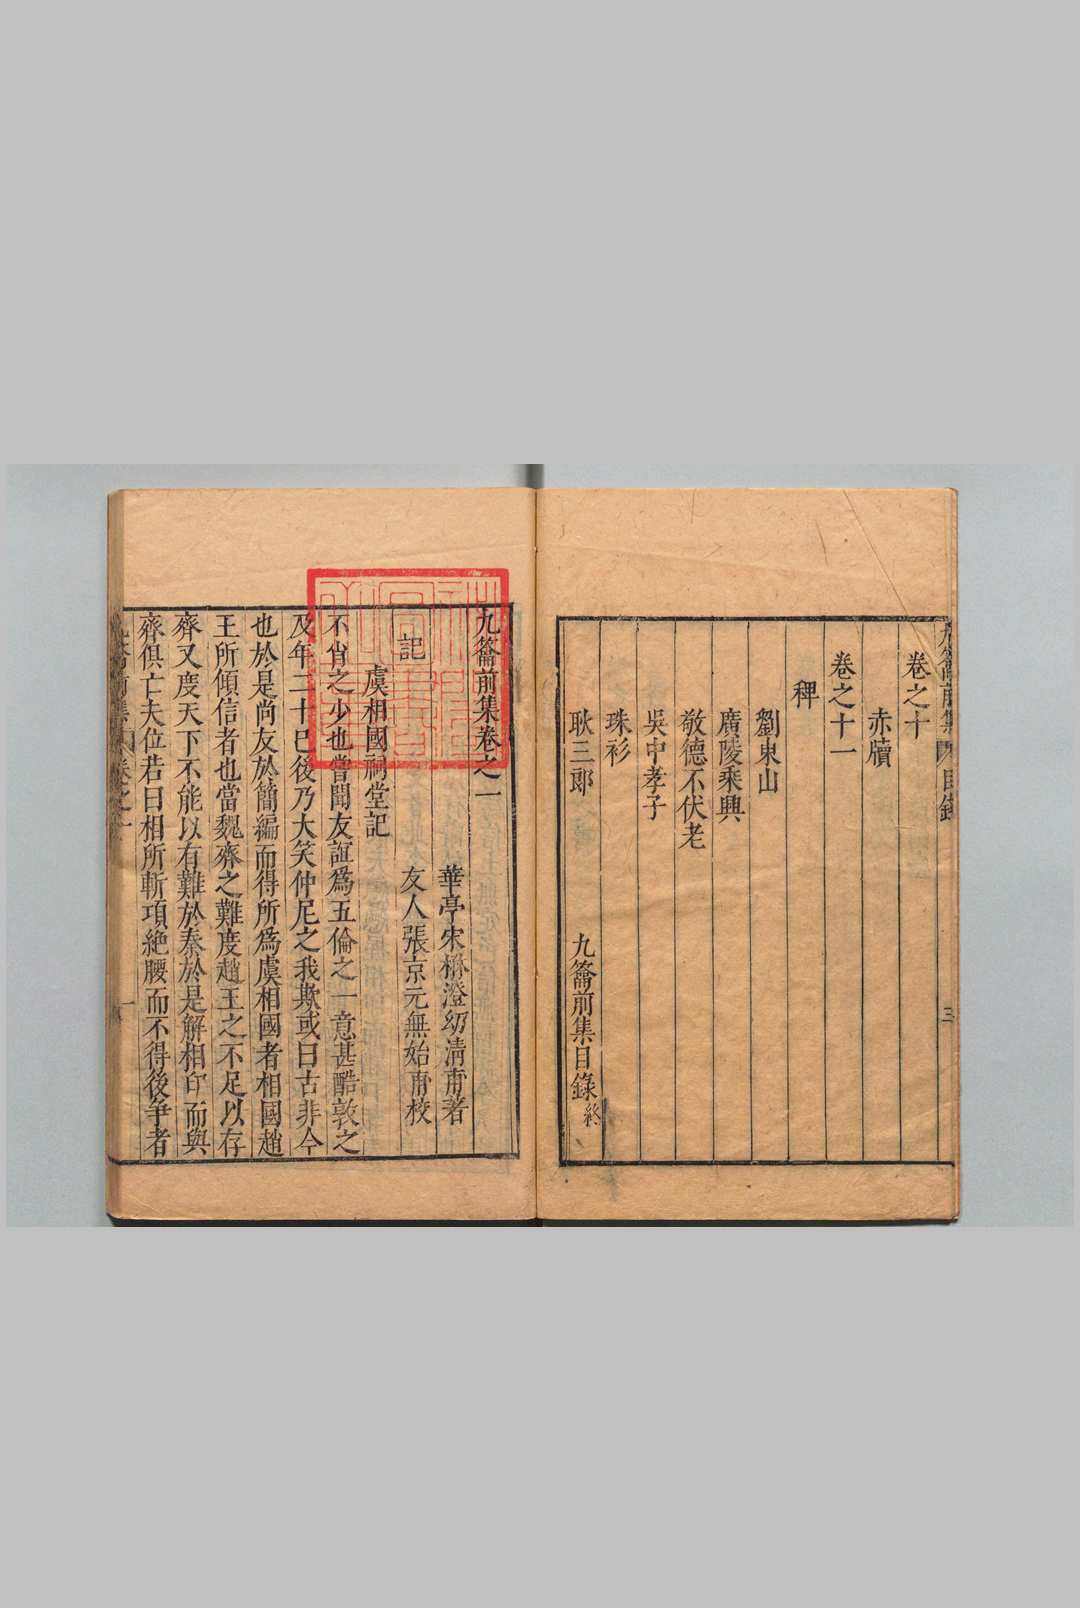 九籥前集 目錄 三
卷之十
赤牘
卷之十一
稗
劉東山
廣陵乘興
敬德不伏老
吳中孝子
珠衫
耿三郎
九籥前集目錄終
九籥前集卷之一
華亭宋楙澄幼清甫著
記
友人張京元無始甫校
虞相國祠堂記
不肖之少也嘗聞友誼爲五倫之一意甚酷敦之
及年二十巳後乃大笑仲尼之我欺或曰古非今
也於是尚友於簡編而得所爲虞相國者相國趙
王所傾信者也當魏齊之難度趙王之不足以存
齊又度天下不能以有難於秦於是解相印而與
齊俱亡夫位若曰相所斬項絶腰而不得後爭者
九籥前集 卷之一 一